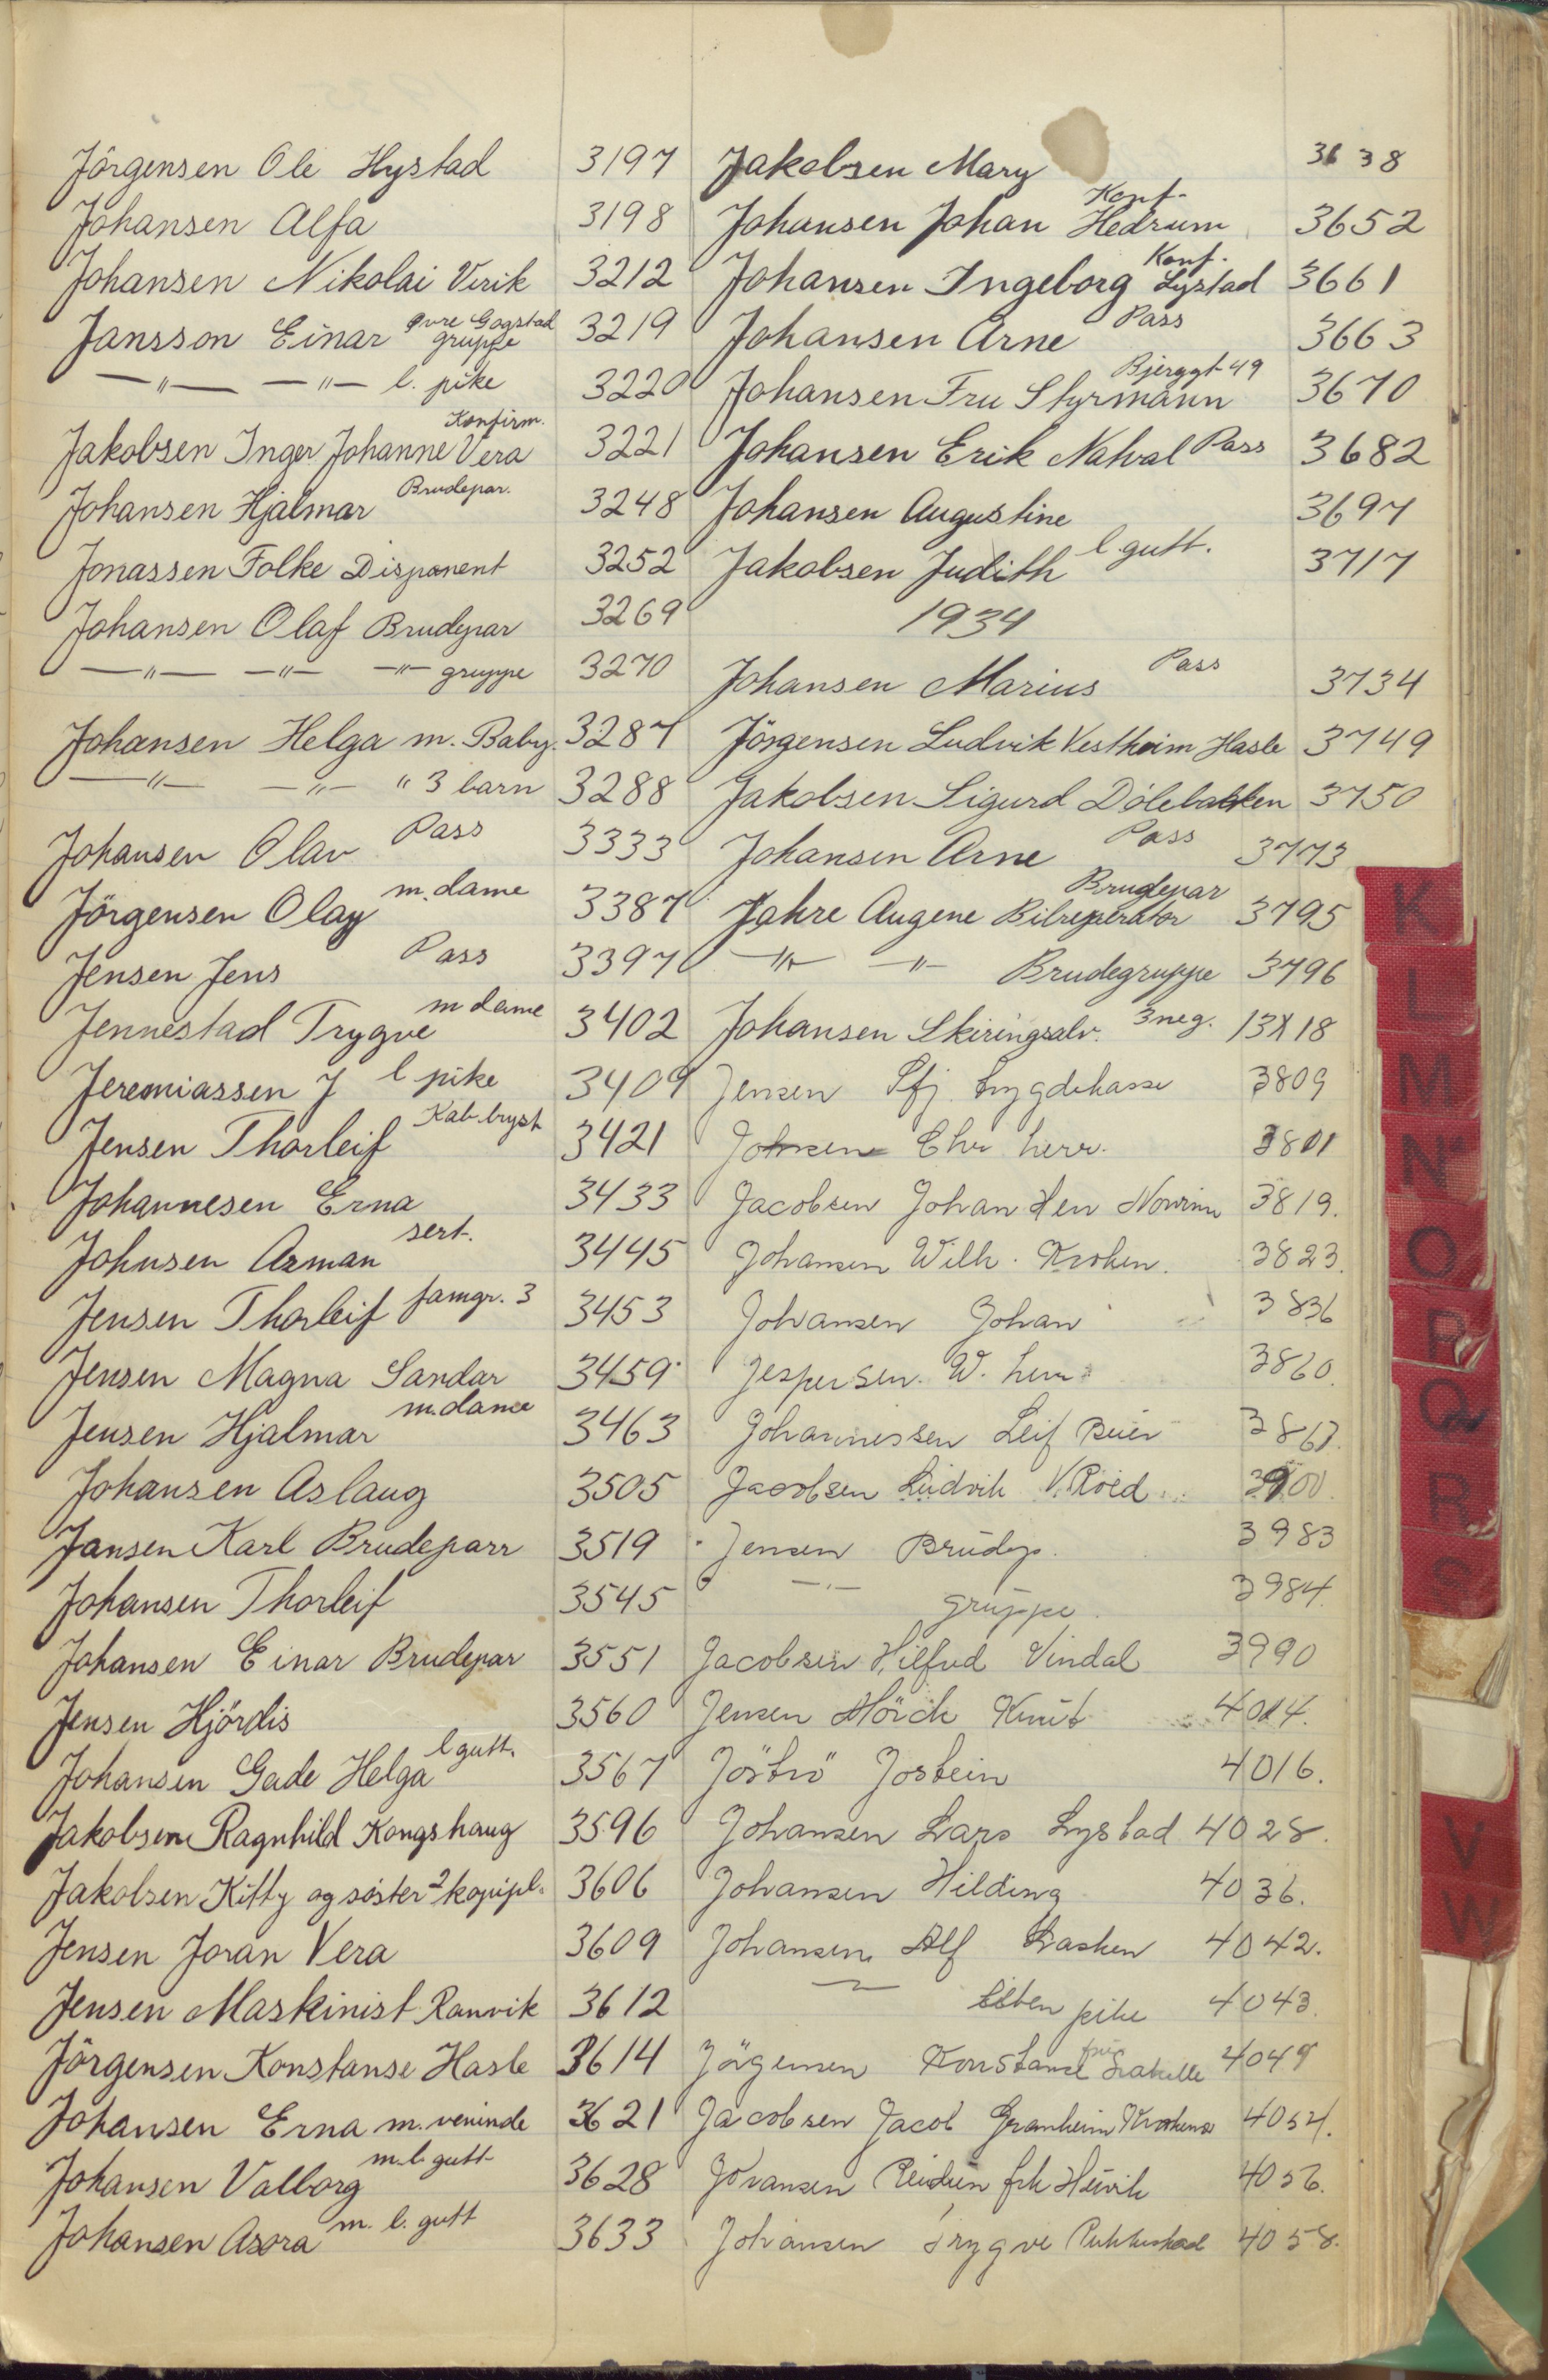 Jörgensen Ole Hystad 3197
Johansen Alfa 3198
Johansen Nikolai Virik 3212
Jansson Einar Øvre Gogstad gruppe 3219
—"— —"— l. pike 3220
Jakobsen Inger Johanne Vera Konfirm. 3221
Johansen Hjalmar Brudepar. 3248
Jonassen Folke Disponent 3252
Johansen Olaf Brudepar 3269
—"— —"— —"— gruppe 3270
Johansen Helga m. Baby. 3287
—"— —"— " 3 barn 3288
Johansen Olav Pass 3333
Jörgensen Olav m. dame 3387
Jensen Jens Pass 3397
Jennestad Trygve m dame 3402
Jeremiassen J l pike 3409
Jensen Thorleif Kab. bryst 3421
Johannesen Erna 3433
Johnsen Arman sert. 3445
Jensen Thorleif famgr. 3 3453
Jensen Magna Sandar 3459
Jensen Hjalmar m. dame 3463
Johansen Aslaug 3505
Jansen Karl Brudeparr 3519
Johansen Thorleif 3545
Johansen Einar Brudepar 3551
Jensen Hjördis 3560
Johansen Gade Helga l gutt. 3567
Jakobsen Ragnhild Kongshaug 3596
Jakobsen Kitty og söster 2 kopipl. 3606
Jensen Joran Vera 3609
Jensen Maskinist Ranvik 3612
Jörgensen Konstanse Hasle 3614
Johansen Erna m. veninde 3621
Johansen Valborg m. l. gutt 3628
Johansen Asora m. l. gutt 3633
Jakobsen Mary 3638
Johansen Johan Konf. Hedrum 3652
Johansen Ingeborg Konf. Lystad 3661
Johansen Arne Pass 3663
Johansen Fru Styrmann Bjerggt 49 3670
Johansen Erik Nahval Pass 3682
Johansen Augustine 3697
Jakobsen Judith l. gutt. 3717
1934
Johansen Marius Pass 3734
Jörgensen Ludvik Vestheim Hasle 3749
Jakobsen Sigurd Dölebakken 3750
Johansen Arne Pass 3773
Jahre Augene Brudepar Bilreperatör 3795
—"— —"— Brudegruppe 3796
Johansen Skiringsalv. 3 neg. 13X18
Jensen Sfj. brygdekasse 3809
Johnsen Chr herr. 3801
Jacobsen Johan 3819.
Johansen Wilh. Krohen. 3823.
Johansen Johan 3836
Jespersen W. herr 3860.
Johannessen Leif 3863.
Jacobsen Ludvik V. Röed 3900
Jensen Brudep. 3983
—"— gruppe. 3984.
Jacobsen Hilfred Vindal 3990
Jensen Mörch Knut 4014.
Jöströ Jostein 4016.
Johansen Lars Lystad 4028.
Johansen Hilding 4036.
Johansen Alf Lasken 4042.
— liten pike 4043.
Jörgensen Konstanse fru 4049
Jacobsen Jacob Granheim 4054.
Johansen frk Huvik 4056.
Johansen Trygve 4058.
K
L
M
N
O
P
Q
R
S
V
W